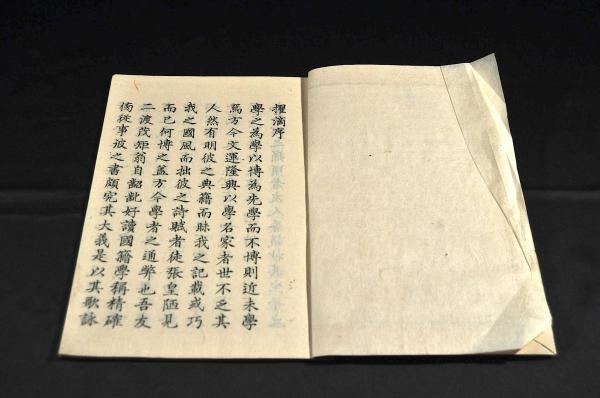 擢滴序
學之為學以博為先學而不博則近未學
焉方今文運隆興以學名家者世不乏其
人然有明彼之典籍而昧我之記載或巧
我之國風而拙彼之詩賦者徒張皇陋見
而已何博之蓋方今學者之通弊也吾友
二渡茂矩翁自齠齓好讀國籍學稱精確
獨從事彼之書頗究其大義是以其歌詠